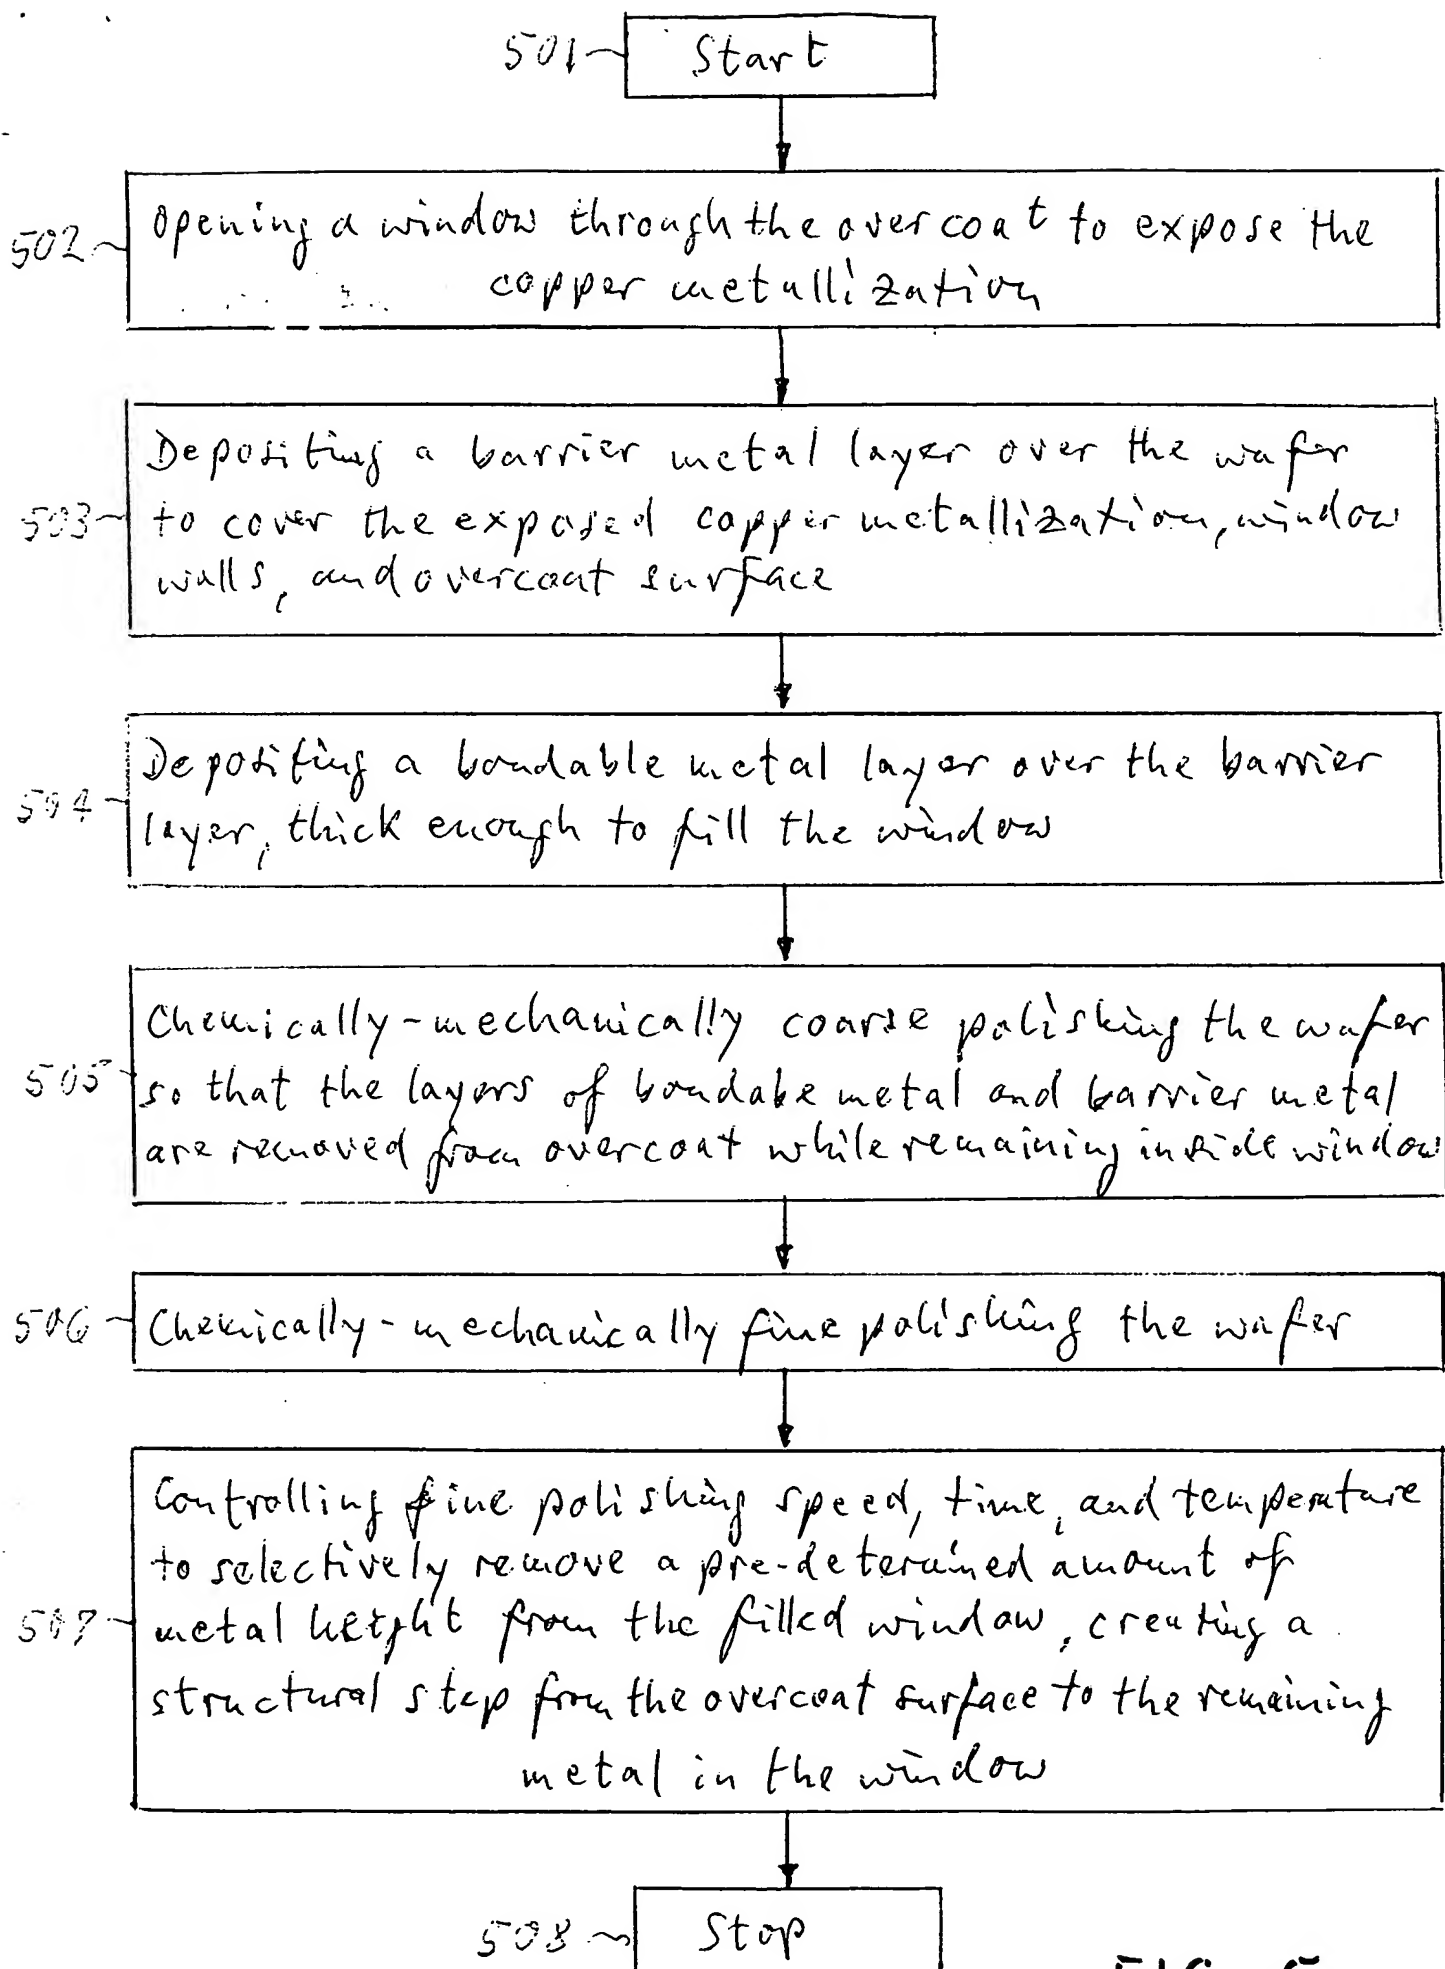 501 Start
502 Opening a window through the overcoat to expose the
copper metallization
Depositing a barrier metal layer over the wafer
503 to cover the exposed copper metallization, window
walls, and overcoat surface
Depositing a bondable metal layer over the barrier
504 layer, thick enough to fill the window
Chemically-mechanically coarse polishing the wafer
505 so that the layers of bondabe metal and barrier metal
are removed from overcoat while remaining inside window
506 Chemically-mechanically fine polishing the wafer
Controlling fine polishing speed, time, and temperature
to selectively remove a pre-determined amount of
507 metal height from the filled window, creating a
structural step from the overcoat surface to the remaining
metal in the window
508 Stop